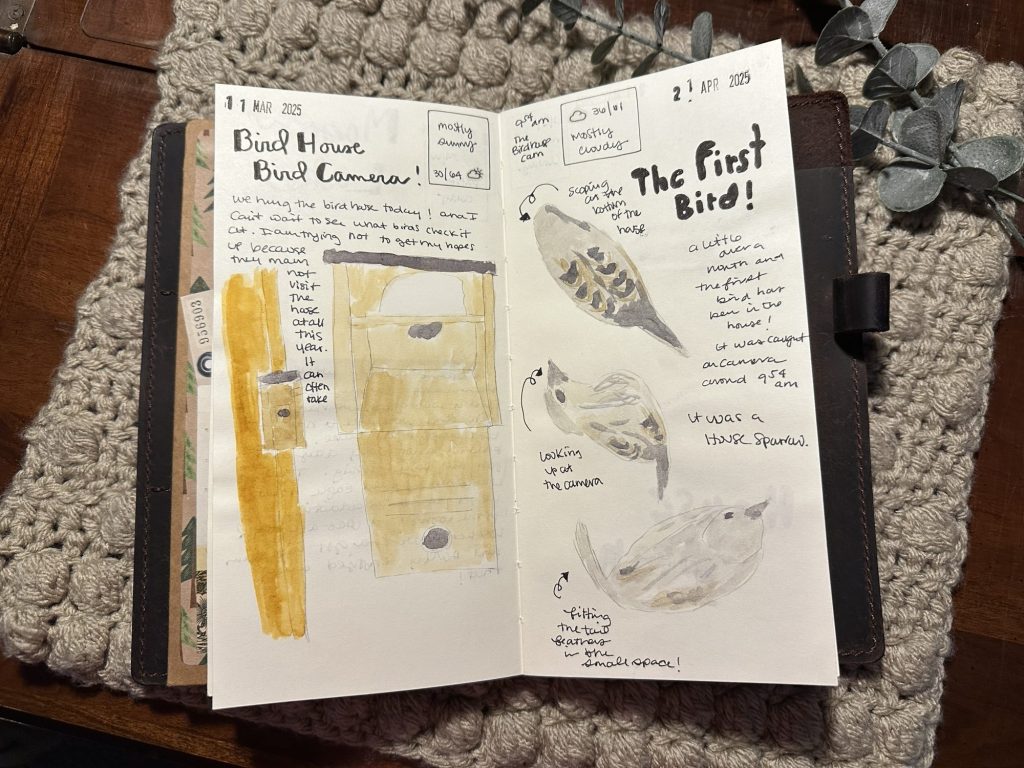 11 MAR 2025
Bird House
Bird Camera!
mostly
sunny
30/64
we hung the birdhouse today! and I
can't wait to see what birds check it
out. I am trying not to get my hopes
up because
they may
not
visit
the
house
at all
this
year.
It
can
often
take
956903
21 APR 2025
9:54 am
The
Birdhouse
cam
36/61
mostly
cloudy
The First
Bird!
scoping
out the
bottom
of the
house
a little
over a
month and
the first
bird has
been in the
house!
It was caught
on camera
around 9:54
am
It was a
House Sparrow.
Looking
up at
the camera
fitting
the tail
feathers
in the
small space!